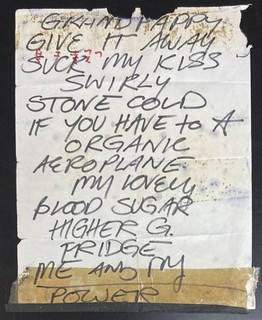 GRANDPAPPY
GIVE IT AWAY
SUCK MY KISS
SWIRLY
STONE COLD
IF YOU HAVE TO A
ORGANIC
AEROPLANE
MY LOVELY
BLOOD SUGAR
HIGHER G.
FRIDGE
ME AND MY
POWER